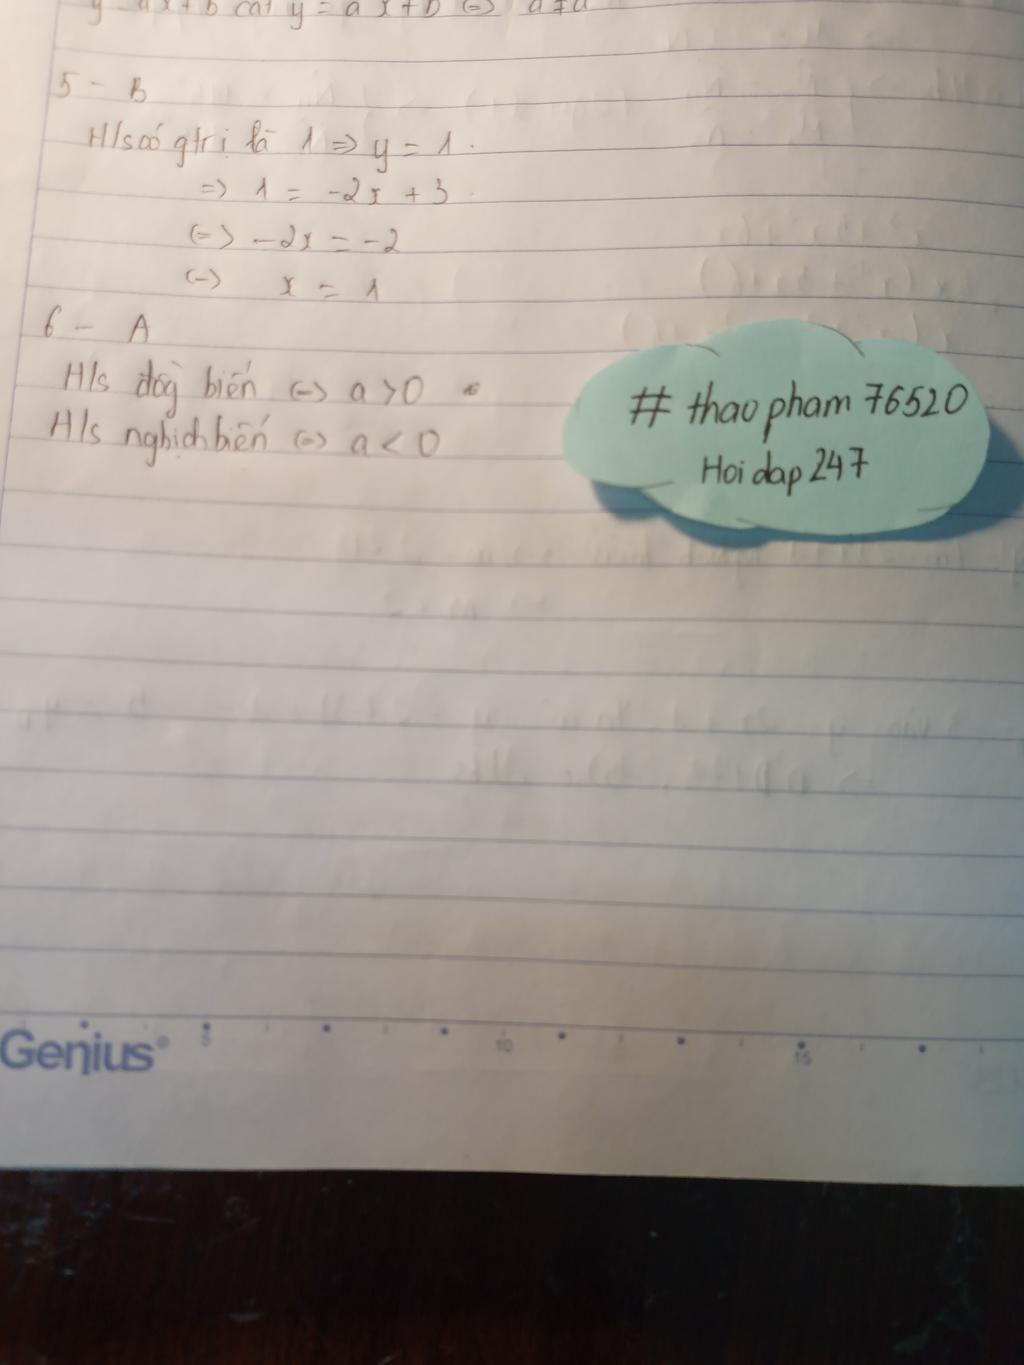 y = ax + b cắt y = a'x + b' <=> a ≠ a'
5 - B
H/s có gtrị là 1 => y = 1.
=> 1 = -2x + 3.
(=> -2x = -2
(=> x = 1
6 - A
H/s đồg biến (=> a > 0
H/s nghịch biến (=> a < 0
# thaopham 76520
Hoi dap 247
Genius®
5 10 15